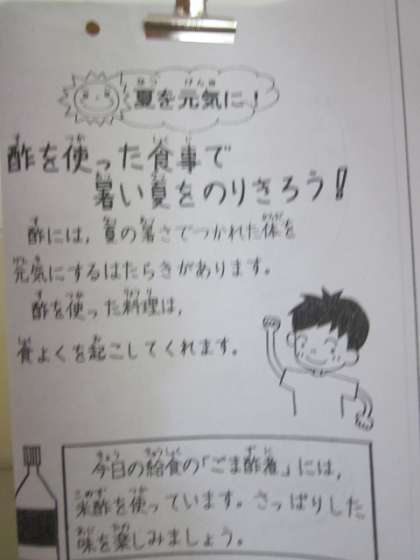 夏を元気に!
酢を使った食事で
暑い夏をのりきろう!!
酢には,夏の暑さでつかれた体を
元気にするはたらきがあります。
酢を使った料理は,
食よくを起こしてくれます。
今日の給食の「ごま酢煮」には,
米酢を使っています。さっぱりした
味を楽しみましょう。